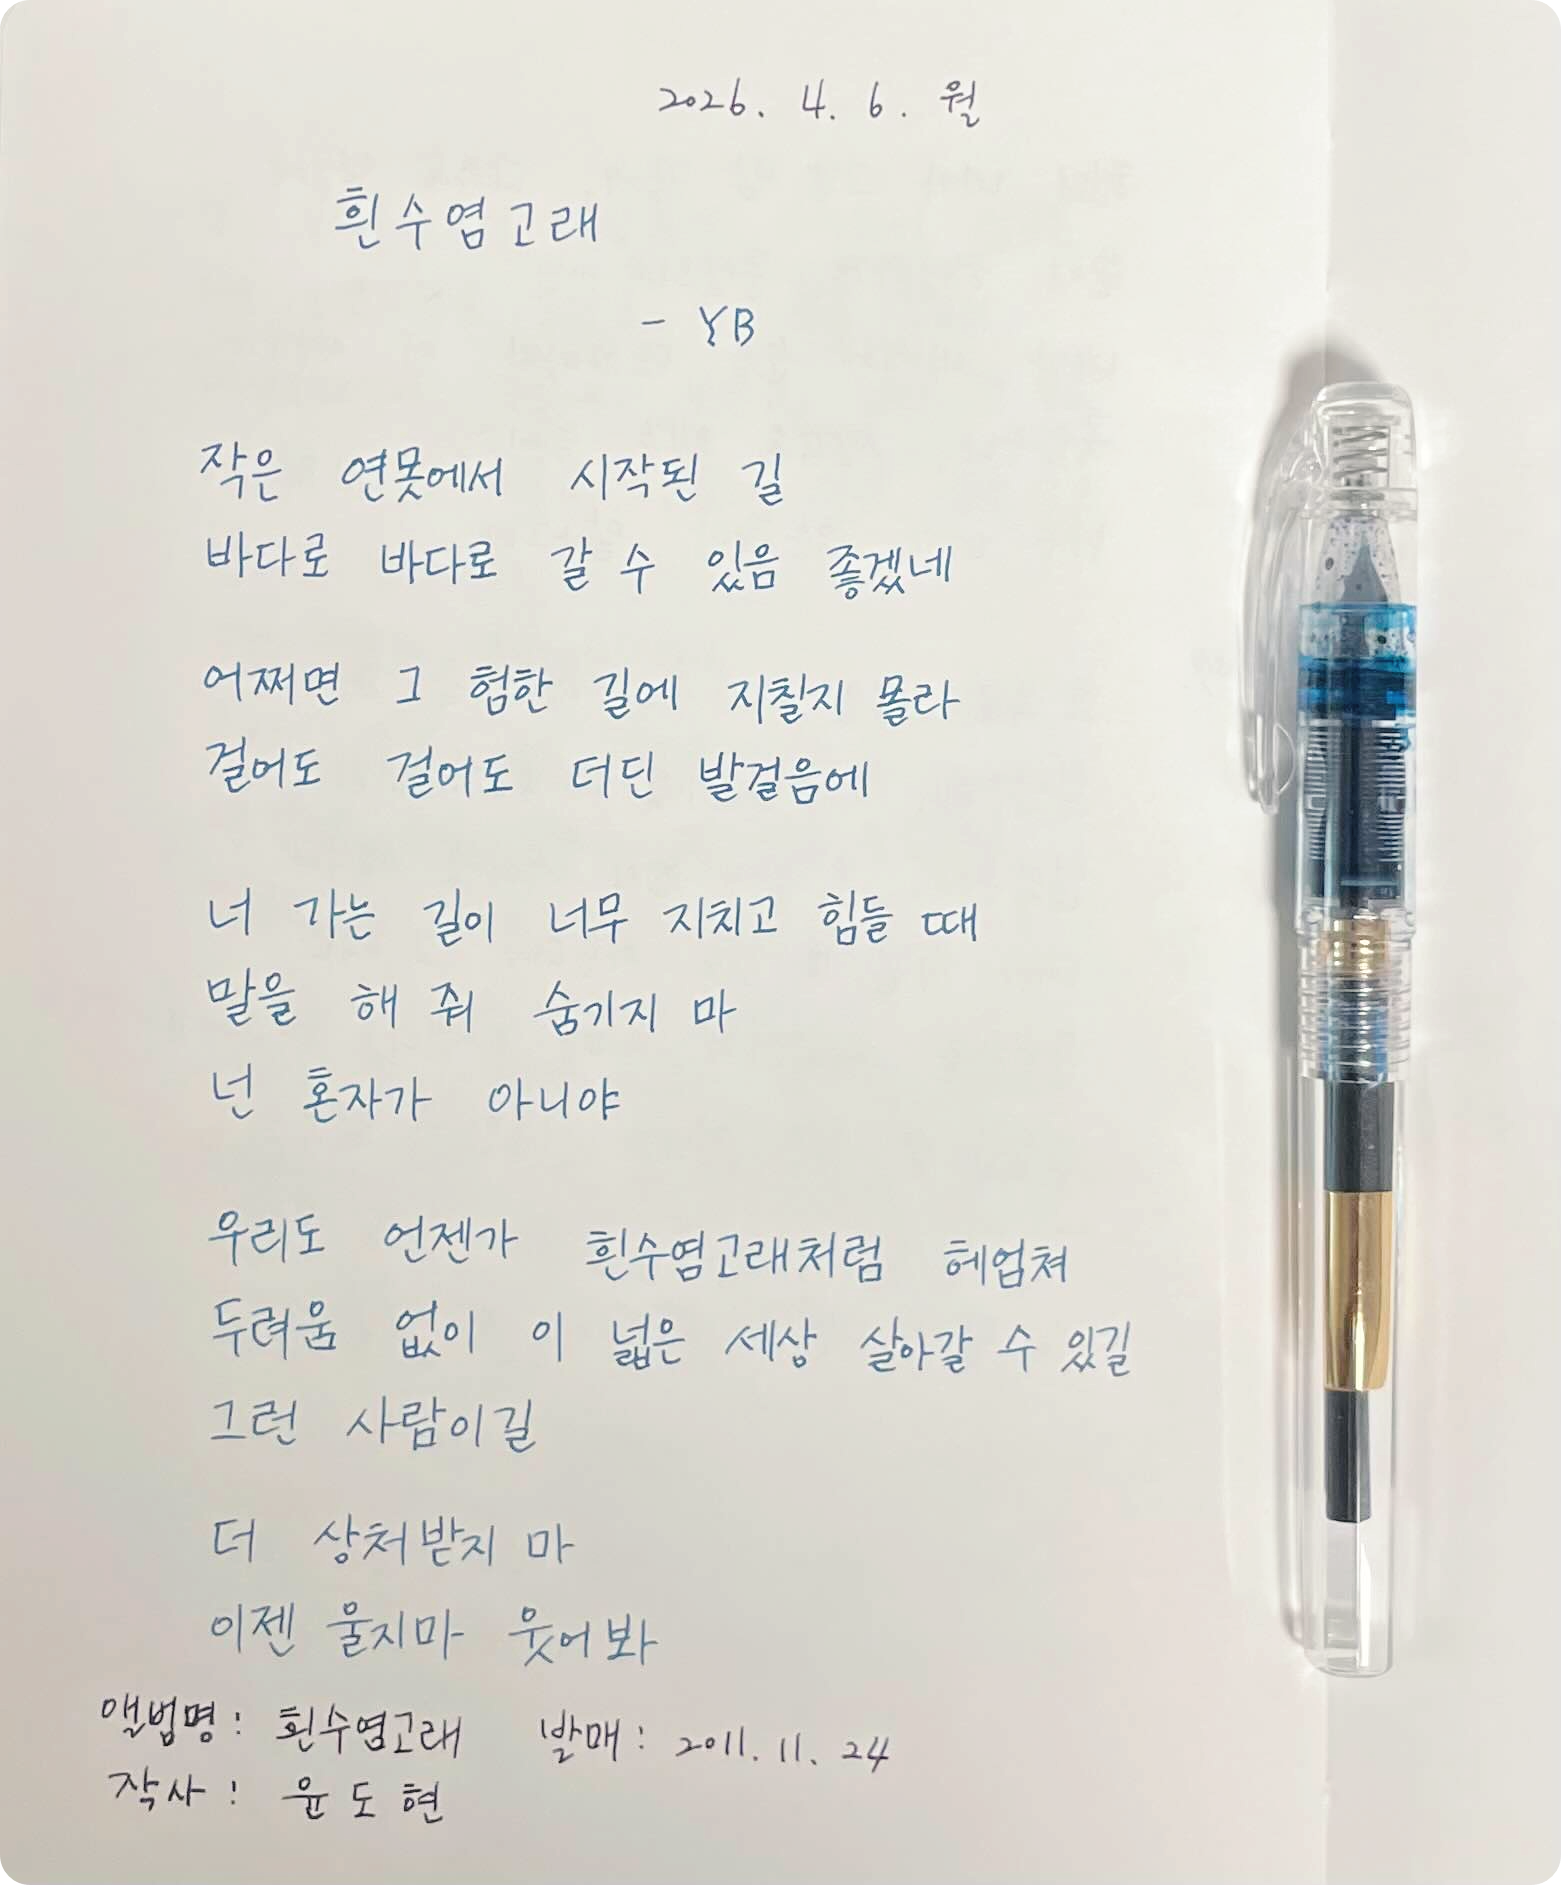 2026. 4. 6. 월
흰수염고래
- YB
작은 연못에서 시작된 길
바다로 바다로 갈 수 있음 좋겠네
어쩌면 그 험한 길에 지칠지 몰라
걸어도 걸어도 더딘 발걸음에
너 가는 길이 너무 지치고 힘들 때
말을 해 줘 숨기지 마
넌 혼자가 아니야
우리도 언젠가 흰수염고래처럼 헤엄쳐
두려움 없이 이 넓은 세상 살아갈 수 있길
그런 사람이길
더 상처받지 마
이젠 울지마 웃어봐
앨범명: 흰수염고래 발매: 2011. 11. 24
작사: 윤도현